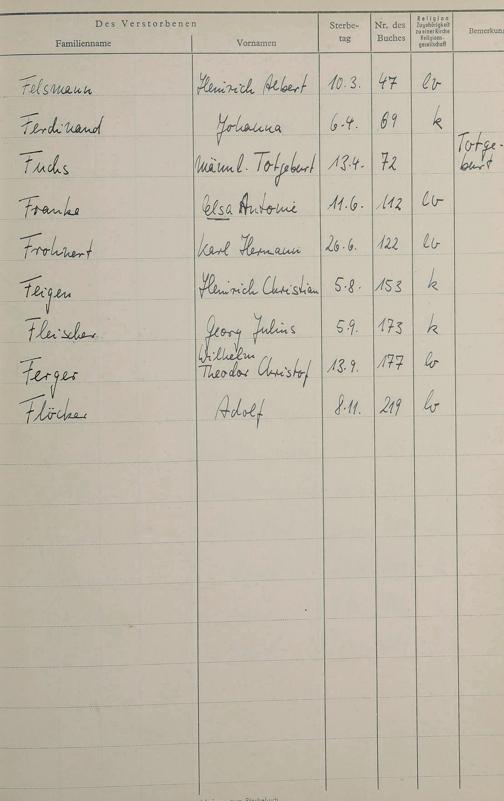 Des Verstorbenen
Sterbe-
tag
Nr. des
Buches
Religion
Zugehörigkeit
zu einer Kirche
Religions-
gesellschaft
Bemerkun
Familienname Vornamen
Felsmann Heinrich Albert 10.3. 47 ev
Ferdinand Johanna 6.4. 69 k
Fuchs männl. Totgeburt 13.4. 72 Totge-
burt
Franke Elsa Antonie 11.6. 112 ev
Frohnert Karl Hermann 26.6. 122 ev
Feigen Heinrich Christian 5.8. 153 k
Fleischer Georg Julius 5.9. 173 k
Ferger Wilhelm
Theodor Christof 13.9. 177 ev
Flöcker Adolf 8.11. 219 ev